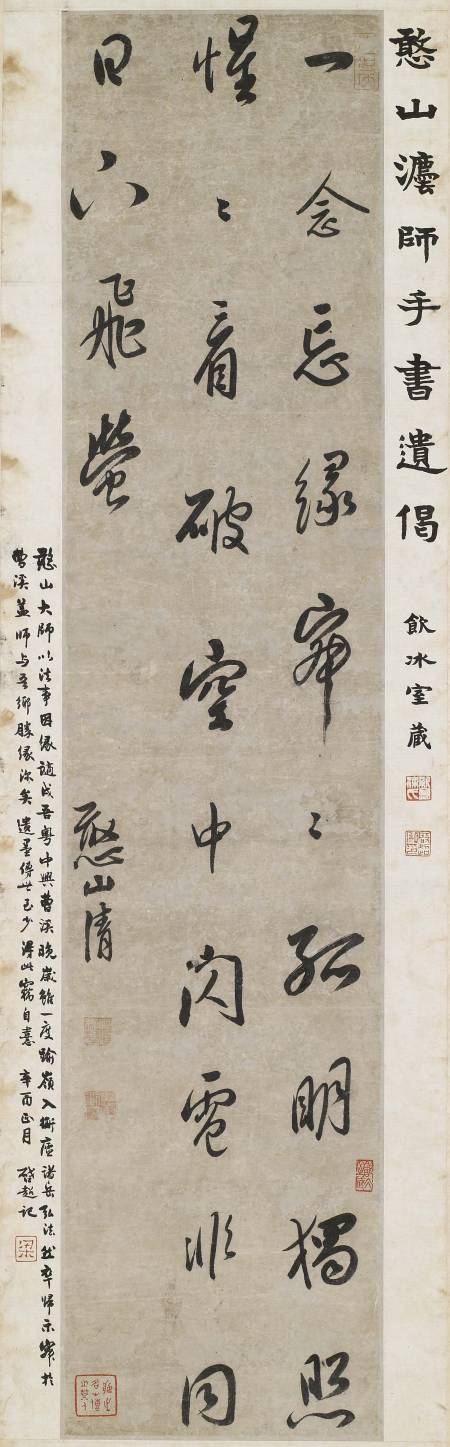 憨山灋師手書遺偈 飲冰室藏
一念忘緣寂〻孤明獨照
惺〻看破空中閃電非同
日下飛螢
憨山清
憨山大師以法事因緣謫戍吾粵中興曹溪晚歲雖一度踰嶺入衡廬諸岳弘法然卒歸示寂於
曹溪蓋師与吾鄉勝緣深矣遺墨傳世已少得此竊自憙 辛酉正月 啟超記
梁